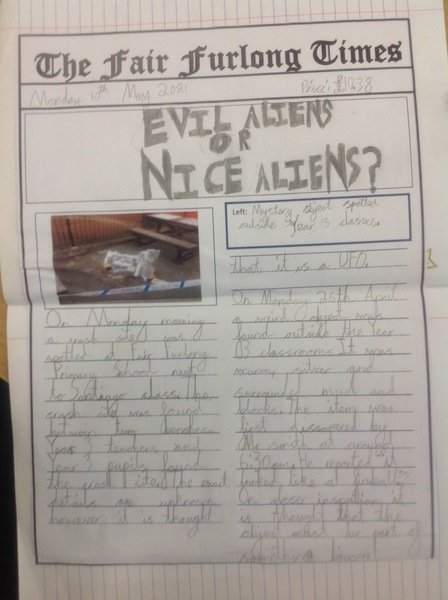 The Fair Furlong Times
Monday 10th May 2021
Price: £10.38
EVIL ALIENS
OR
NICE ALIENS?
Left: Mystery object spotted
outside Year 3 classes.
On Monday morning
a crash site was
spotted at Fair Furlong
Primary School next
to Santiago class. The
crash site was found
between two benches.
Year teachers and
Year 3 pupils found
the crash site. The exact
details are
however it is thought
that it is a UFO.
On Monday 26th April
a weird object was
found outside the Year
3 classrooms. It was
silver and
mud and
blocks. The item was
first discovered by
Mr Smith at around
6:30am. He reported it
looked like a
On closer inspection it
is thought that the
object must be part of
something bigger.